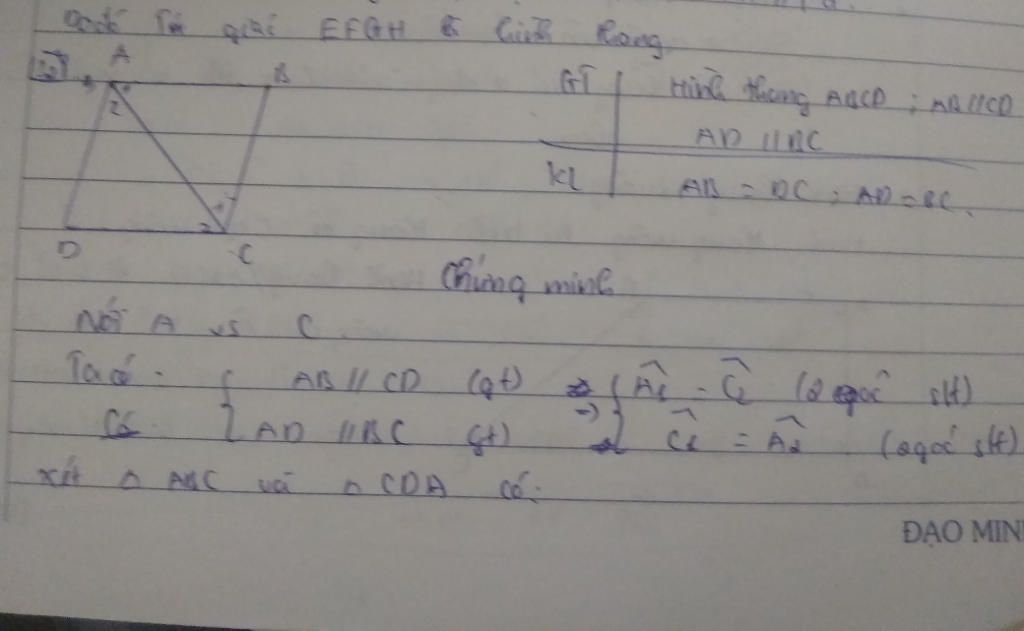 Tứ giác EFGH là hình
A
B
GT
Hình thang ABCD ; AB//CD
2
AD // BC
KL
AB = DC ; AD = BC.
2
D
C
Chứng minh
Nối A vs C
Ta có: { AB // CD (gt) => { Â1 = Ĉ2 (2 góc slt)
AD // BC (gt) Ĉ1 = Â2 (2 góc slt)
Xét △ ABC và △ CDA có:
ĐẠO MIN